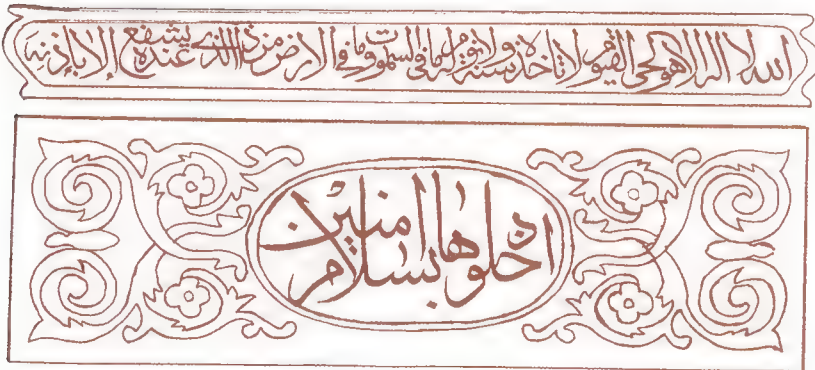 الله لا اله الا هو الحي القيوم لا تاخذه سنة ولا نوم له ما في السموات وما في الارض من ذا الذي عنده يشفع إلا بإذنه
ادخلوها بسلام امنين